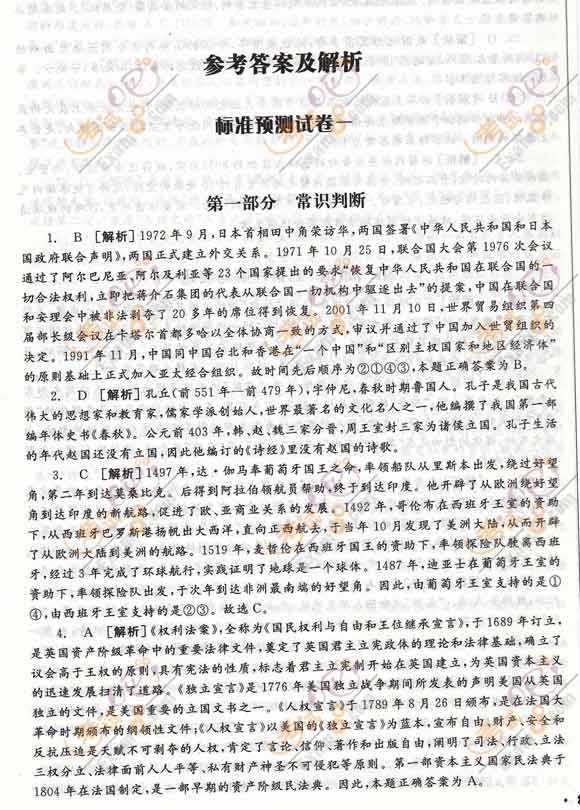 参考答案及解析
标准预测试卷一
第一部分 常识判断
1. B [解析]1972年9月,日本首相田中角荣访华,两国签署《中华人民共和国和日本
国政府联合声明》,两国正式建立外交关系。1971年10月25日,联合国大会第1976次会议
通过了阿尔巴尼亚、阿尔及利亚等23个国家提出的要求“恢复中华人民共和国在联合国的一
切合法权利,立即把蒋介石集团的代表从联合国一切机构中驱逐出去”的提案,中国在联合国
和安理会中被非法剥夺了20多年的席位得到恢复。2001年11月10日,世界贸易组织第四
届部长级会议在卡塔尔首都多哈以全体协商一致的方式,审议并通过了中国加入世贸组织的
决定。1991年11月,中国同中国台北和香港在“一个中国”和“区别主权国家和地区经济体”
的原则基础上正式加入亚太经合组织。故时间先后顺序为②①④③,本题正确答案为B。
2. D [解析]孔丘(前551年—前479年),字仲尼,春秋时期鲁国人。孔子是我国古代
伟大的思想家和教育家,儒家学派创始人,世界最著名的文化名人之一,他编撰了我国第一部
编年体史书《春秋》。公元前403年,韩、赵、魏三家分晋,周王室封三家为诸侯立国。孔子生活
的年代赵国还没有立国,因此他编订的《诗经》里没有赵国的诗歌。
3. C [解析]1497年,达·伽马奉葡萄牙国王之命,率领船队从里斯本出发,绕过好望
角,第二年到达莫桑比克。后得到阿拉伯领航员帮助,终于到达印度。他开辟了从欧洲绕好望
角到达印度的新航路,促进了欧、亚商业关系的发展。1492年,哥伦布在西班牙王室的资助
下,从西班牙巴罗斯港扬帆出大西洋,直向正西航去,于当年10月发现了美洲大陆,从而开辟
了从欧洲大陆到美洲的航路。1519年,麦哲伦在西班牙国王的资助下,率领探险队驶离西班
牙,经过3年完成了环球航行,实践证明了地球是一个球体。1487年,迪亚士在葡萄牙王室的
资助下,率领探险队出发,于次年到达非洲最南端的好望角。因此,由葡萄牙王室支持的是①
④,由西班牙王室支持的是②③。故选C。
4. A [解析]《权利法案》,全称为《国民权利与自由和王位继承宣言》,于1689年订立,
是英国资产阶级革命中的重要法律文件,奠定了英国君主立宪政体的理论和法律基础,确立了
议会高于王权的原则,具有宪法的性质,标志着君主立宪制开始在英国建立,为英国资本主义
的迅速发展扫清了道路。《独立宣言》是1776年美国独立战争期间所发表的声明美国从英国
独立的文件,是美国重要的立国文书之一。《人权宣言》于1789年8月26日颁布,是在法国大
革命时期颁布的纲领性文件;《人权宣言》以美国的《独立宣言》为蓝本,宣布自由、财产、安全和
反抗压迫是天赋不可剥夺的人权,肯定了言论、信仰、著作和出版自由,阐明了司法、行政、立法
三权分立、法律面前人人平等、私有财产神圣不可侵犯等原则。第一部资本主义国家民法典于
1804年在法国制定,是一部早期的资产阶级民法典。因此,本题正确答案为A。